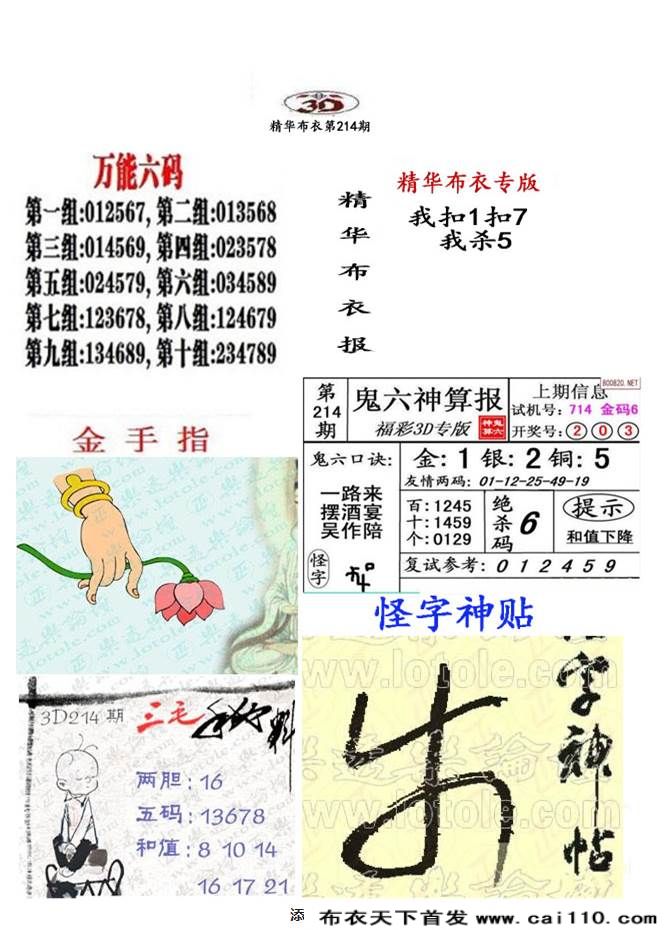 3D
精华布衣第214期
万能六码
第一组:012567, 第二组:013568
第三组:014569, 第四组:023578
第五组:024579, 第六组:034589
第七组:123678, 第八组:124679
第九组:134689, 第十组:234789
精华布衣报
精华布衣专版
我扣1扣7
我杀5
金手指
第214期
鬼六神算报
福彩3D专版
神鬼算六
上期信息
BOO820.NET
试机号: 714 金码6
开奖号: 2 0 3
鬼六口诀:
一路来
摆酒宴
吴作陪
怪字
金: 1 银: 2 铜: 5
友情两码: 01-12-25-49-19
百: 1245
十: 1459
个: 0129
绝杀码 6
提示
和值下降
复试参考: 0 1 2 4 5 9
怪字神贴
字神帖
www.lotole.com
3D214期
三毛
料
两胆: 16
五码: 13678
和值: 8 10 14
16 17 21
添
布衣天下首发 www.cai110.com